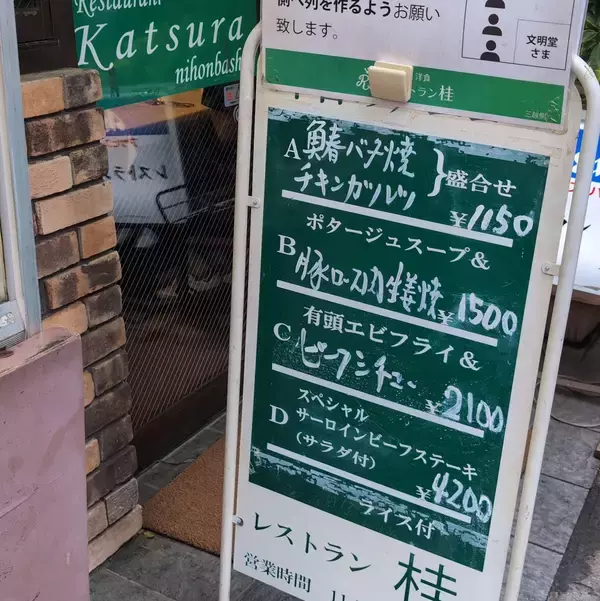 Restaurant
Katsura
nihonbash
側へ列を作るようお願い
致します。
文明堂
さま
洋食
レストラン桂
レストラン
A 鰆バター焼
チキンカツレツ
}盛合せ
¥1150
ポタージュスープ&
B 豚ロース肉生姜焼
¥1500
有頭エビフライ&
C ビーフシチュー
¥2100
スペシャル
D サーロインビーフステーキ
(サラダ付)
¥4200
ライス付
レストラン 桂
営業時間 11